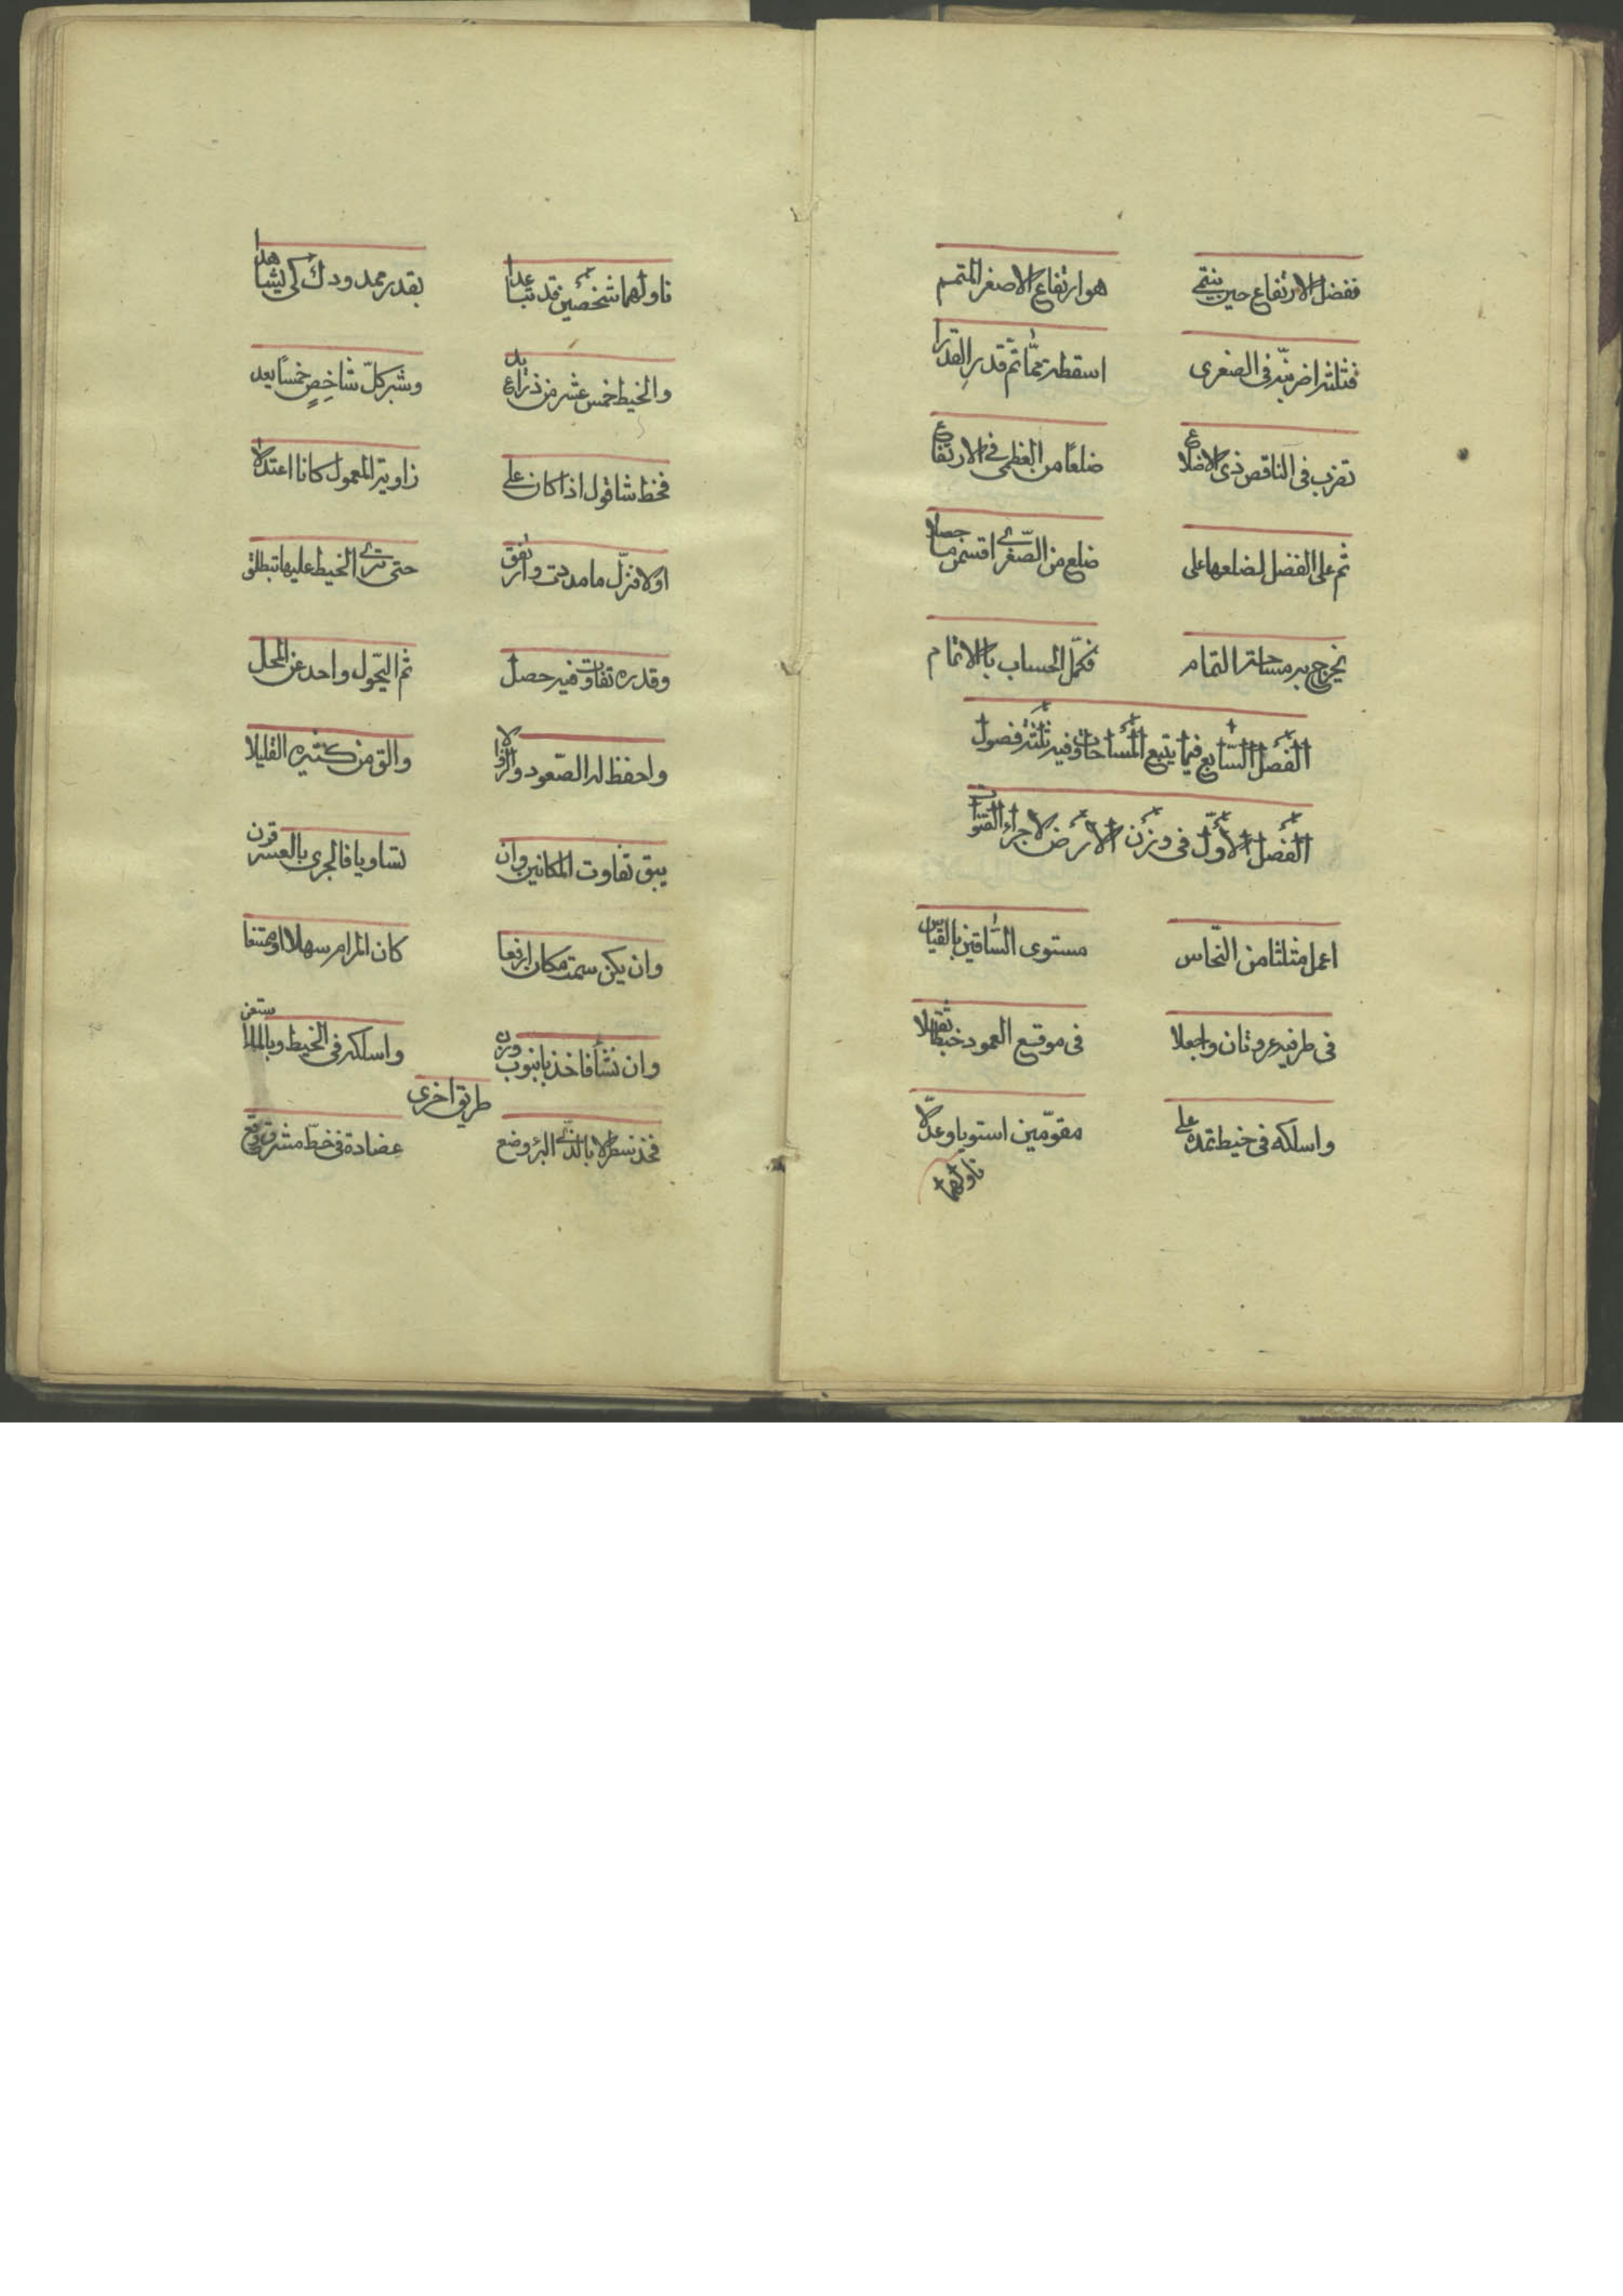 ففضل الارتفاع حين ينتمى هو ارتفاع الاصغر المتمم
فثلثه اضربنه فى الصغرى اسقطه مما تم قدر القدرا
تضرب فى الناقص ذى الاضلاع ضلعا من العظمى فى الارتفاع
ثم على الفضل لضلعها على ضلع من الصّغرى اقسمن ما حصلا
يخرج به مساحة التمام فكمّل الحساب بالاتمام
الفصل السّابع فيما يتبع المساحات وفيه ثلثة فصول
الفصل الاوّل فى وزن الارض لاجراء القنوات
اعمل مثلثا من النّحاس مستوى السّاقين بالقيّاس
فى طرفيه عروتان واجعلا فى موقع العمود خيطا ثقلا
واسلكه فى خيط تمده على مقوّمين استويا وعدّلا
ناولهما
ناولهما شخصين قد تباعدا بقدر ممدودك كى يشاهدا
والخيط خمس عشر من ذراع يد وشبر كلّ شاخِصٍ خمسًا يعد
فخط شاقول اذا كان على زاوية المعمول كانا اعتدلا
اولا فنزّل ما مددت وارتفق حتى ترى الخيط عليها تبطلق
وقدره تفاوت فيه حصل ثم التحّول واحد عن المحل
واحفظ له الصّعود والنزولا والق من كثيره القليلا
يبق تفاوت المكانين وان تساويا فالجرى بالعسر قرن
وان يكن سمت مكان ارفعا كان المرام سهلا او ممتنعا
وان تشأ فاخذ بانبوب وزن واسلكه فى الخيط وبالماء ستعن
طريق اخرى
فخذ نسطرلابا لذى البئر وضع عضادة فى خطّ مشرق وقع